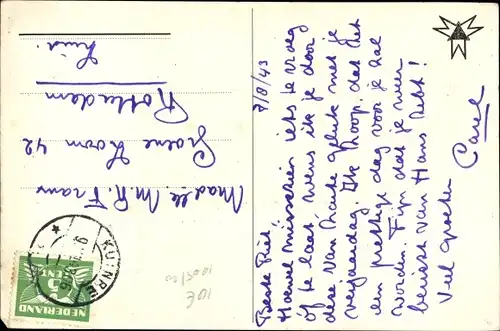 7/8/43
Beste Riet
Hoewel misschien iets te vroeg
óf te laat wens ik je door
deze van harte geluk met je
verjaardag. Ik hoop, dat het
een prettige dag voor je zal
worden. Fijn dat je weer
bericht van Hans hebt!
Veel groeten
Carel
Madlle. M. R. Frans
Groene Zoom 42
Rotterdam
Zuid.
KUINRE
NEDERLAND
5
CENT